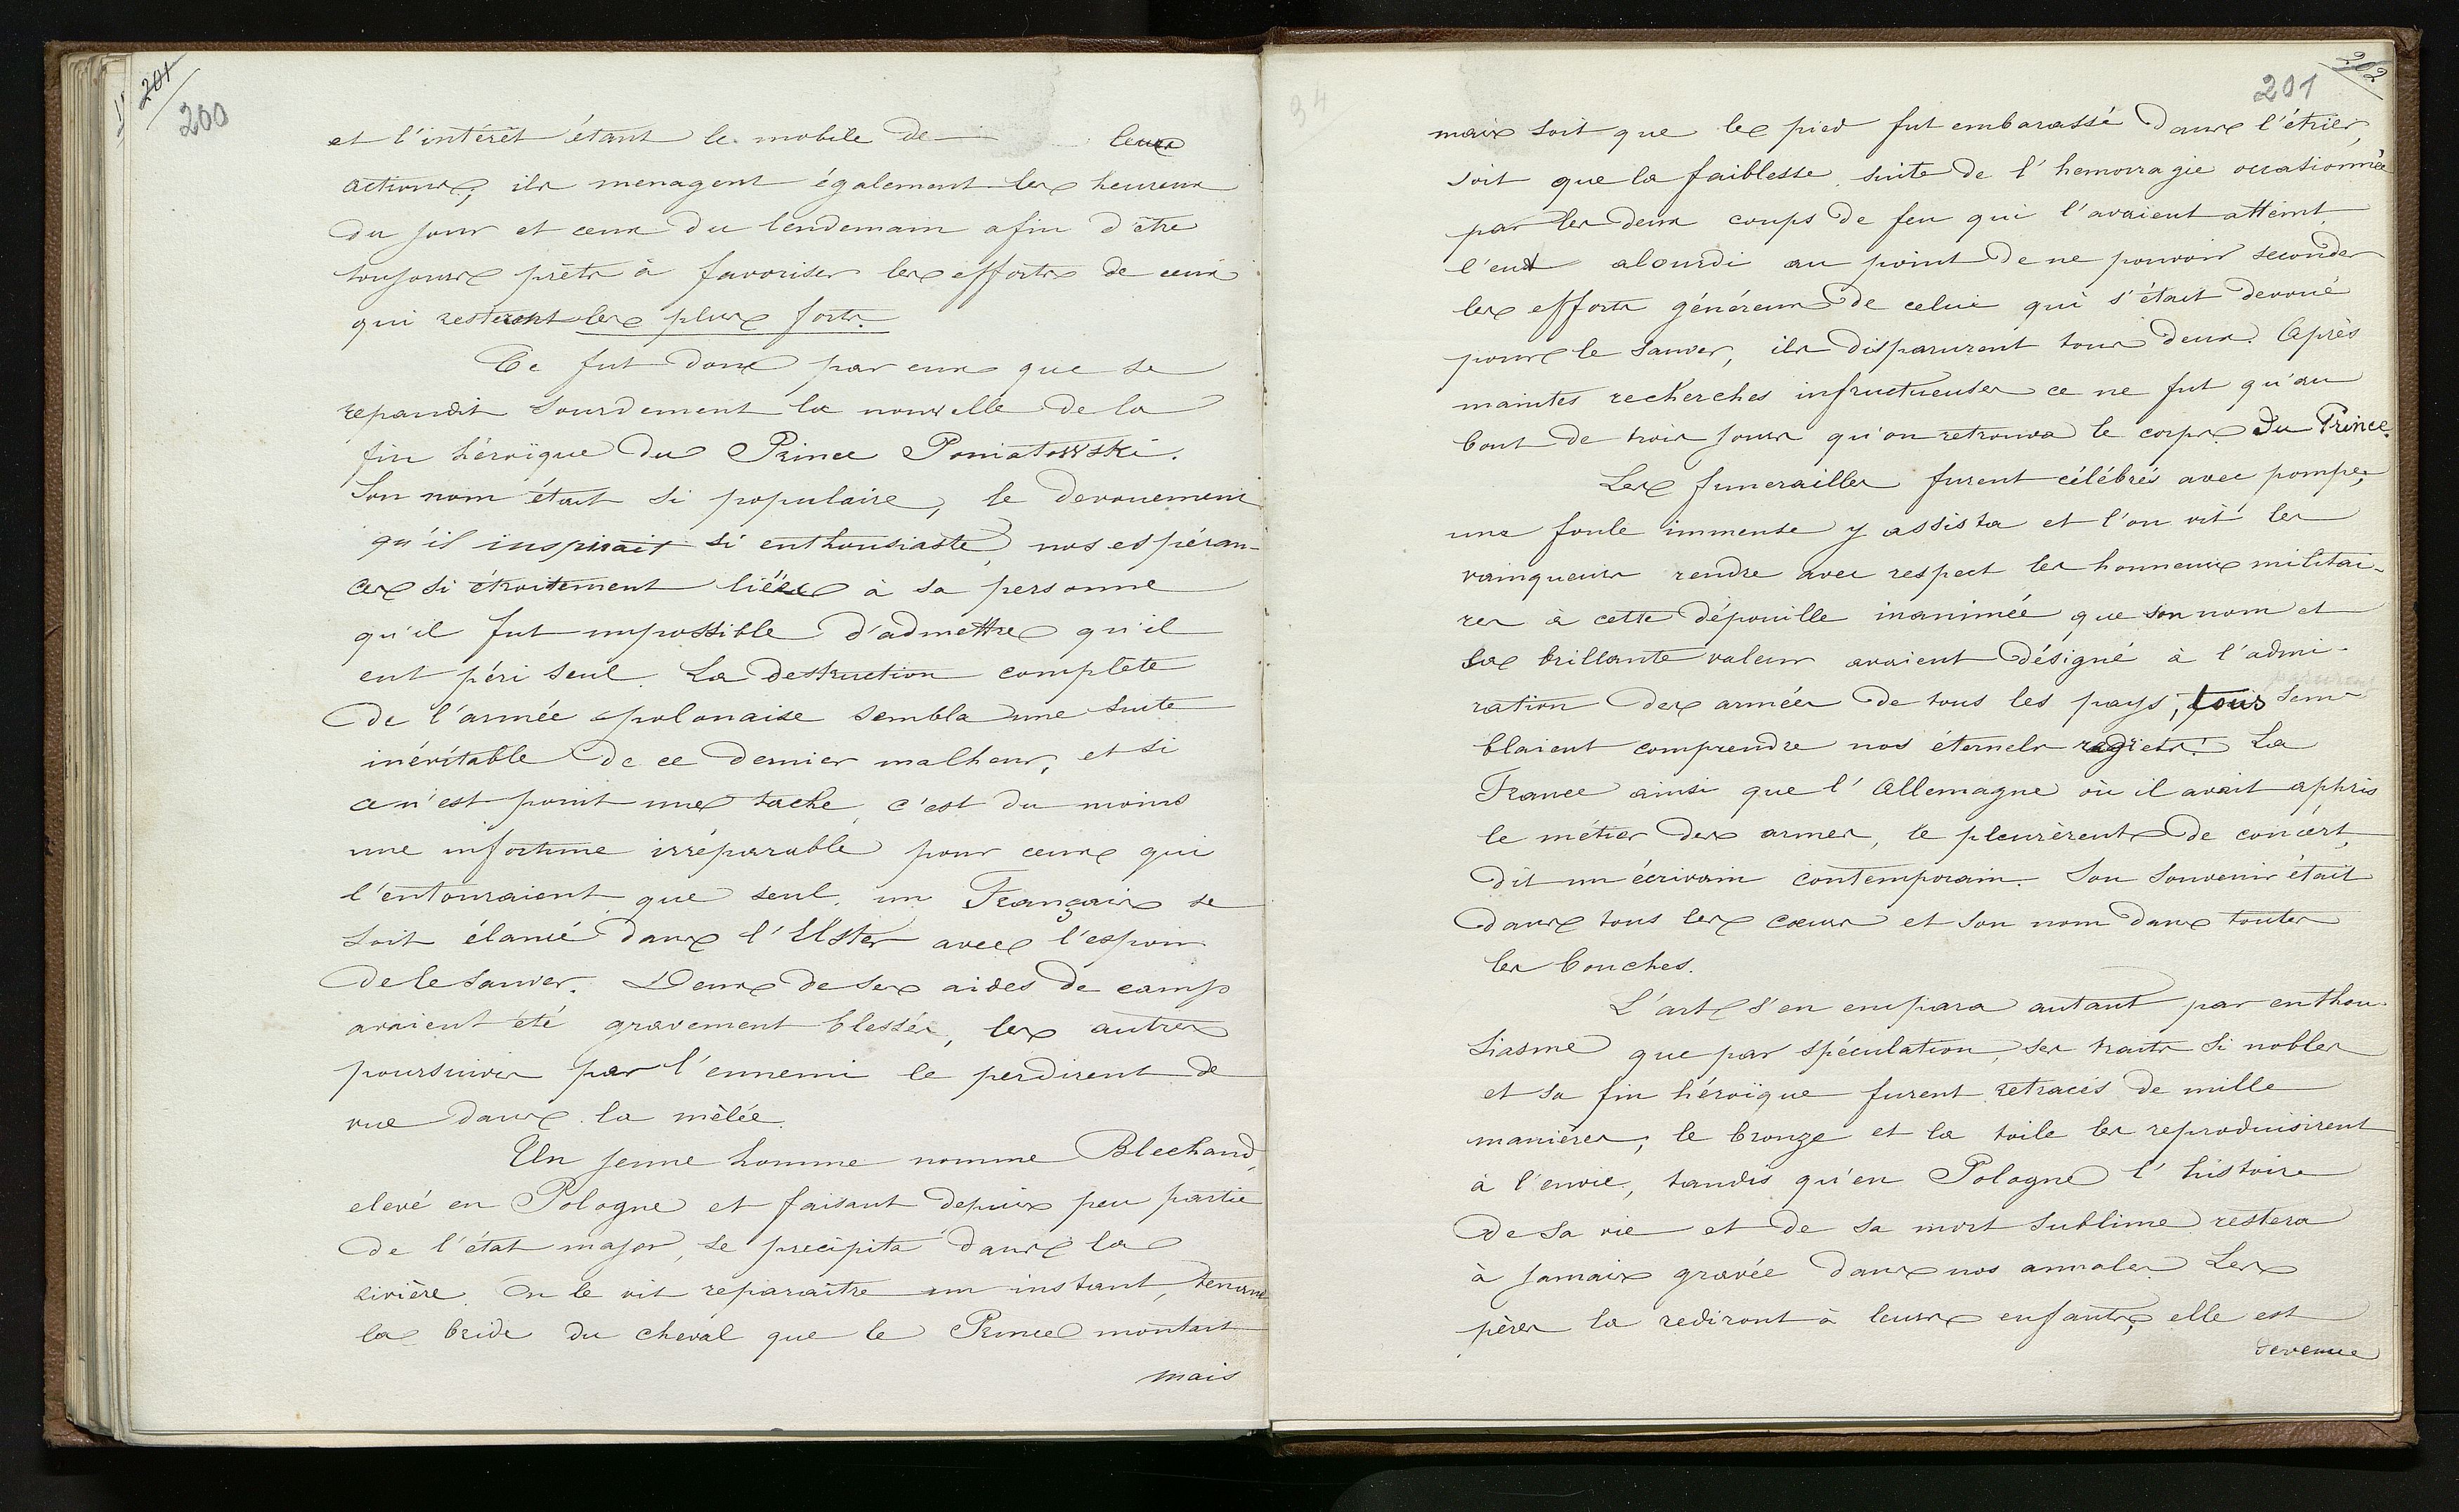 201
200
et l'intérêt étant le mobile de leurs
actions, ils menagent également les heureux
du jour et ceux du lendemain afin d'être
toujours prêts à favoriser les efforts de ceux
qui resteront les plus forts.
Ce fut donc par eux que se
repandit sourdement la nouvelle de la
fin héroïque du Prince Poniatowski.
Son nom était si populaire, le devouement
qu'il inspirait si enthousiaste, nos espéran-
ces si étroitement liées à sa personne
qu'il fut impossible d'admettre qu'il
eut péri seul. La destruction complète
de l'armée polonaise sembla une suite
inévitable de ce dernier malheur, et si
ce n'est point une tache, c'est du moins
une infortune irréparable pour ceux qui
l'entouraient que seul, un Français se
soit élancé dans l'Elster avec l'espoir
de le sauver. Deux de ses aides de camp
avaient été gravement blessés, les autres
poursuivis par l'ennemi le perdirent de
vue dans la mêlée.
Un jeune homme nomme Blechand,
elevé en Pologne et faisant depuis peu partie
de l'état major, se précipita dans la
rivière. On le vit reparaître un instant, tenant
la bride du cheval que le Prince montait
mais
34
202
201
mais soit que le pied fut embarassé dans l'étrier,
soit que la faiblesse suite de l'hemorragie occasionnée
par les deux coups de feu qui l'avaient atteint,
l'eut alourdi au point de ne pouvoir seconder
les efforts généreux de celui qui s'était devoué
pour le sauver, ils disparurent tous deux. Après
maintes recherches infructueuses ce ne fut qu'au
bout de trois jours qu'on retrouva le corps du Prince.
Les funerailles furent célébrés avec pompe,
une foule immense y assista et l'on vit les
vainqueurs rendre avec respect les honneurs militai-
res à cette dépouille inanimée que son nom et
sa brillante valeur avaient désigné à l'admi-
ration des armées de tous les pays, tous sem
blaient comprendre nos éternels regrets! La
France ainsi que l'Allemagne où il avait appris
le métier des armes, le pleurèrent de concert,
dit un écrivain contemporain. Son souvenir était
dans tous les cœurs et son nom dans toutes
les bouches.
L'art s'en empara autant par enthou-
siasme que par spéculation, ses traits si nobles
et sa fin héroïque furent retracés de mille
manières, le bronze et la toile les reproduisirent
à l'envie, tandis qu'en Pologne l'histoire
de sa vie et de sa mort sublime restera
à jamais gravée dans nos annales. Les
pères la rediront à leurs enfants, elle est
devenue